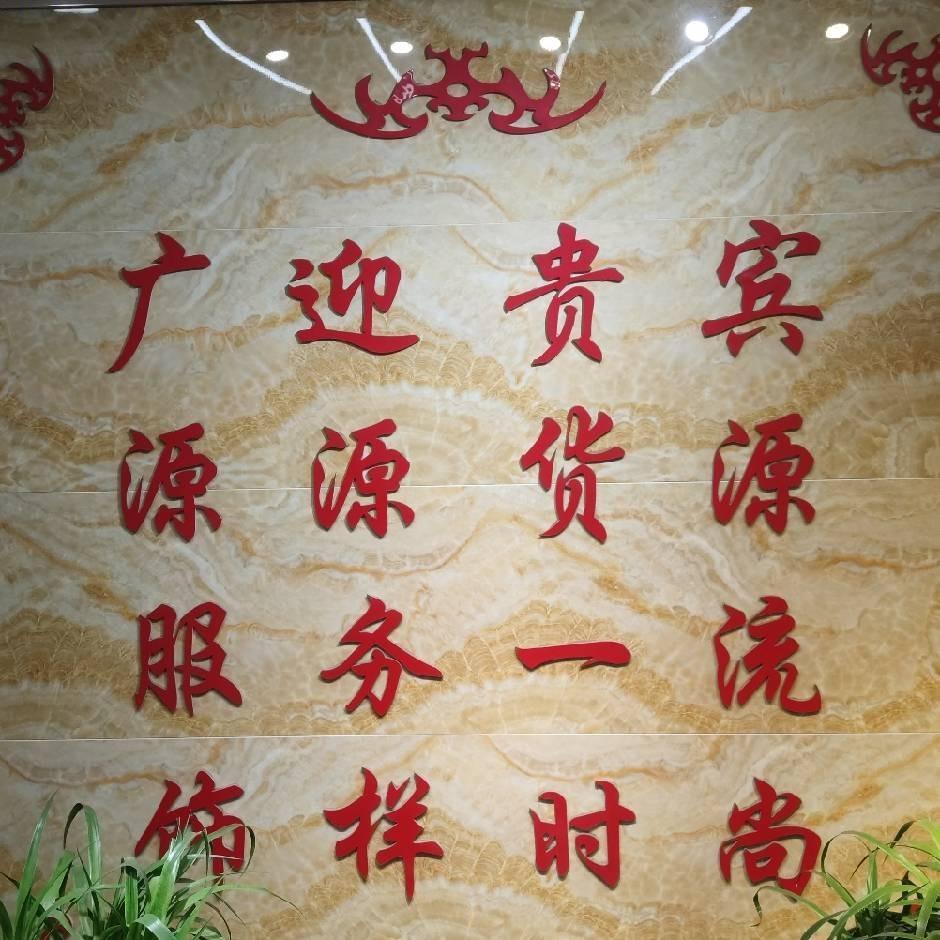 广迎贵宾
源源货源
服务一流
饰样时尚